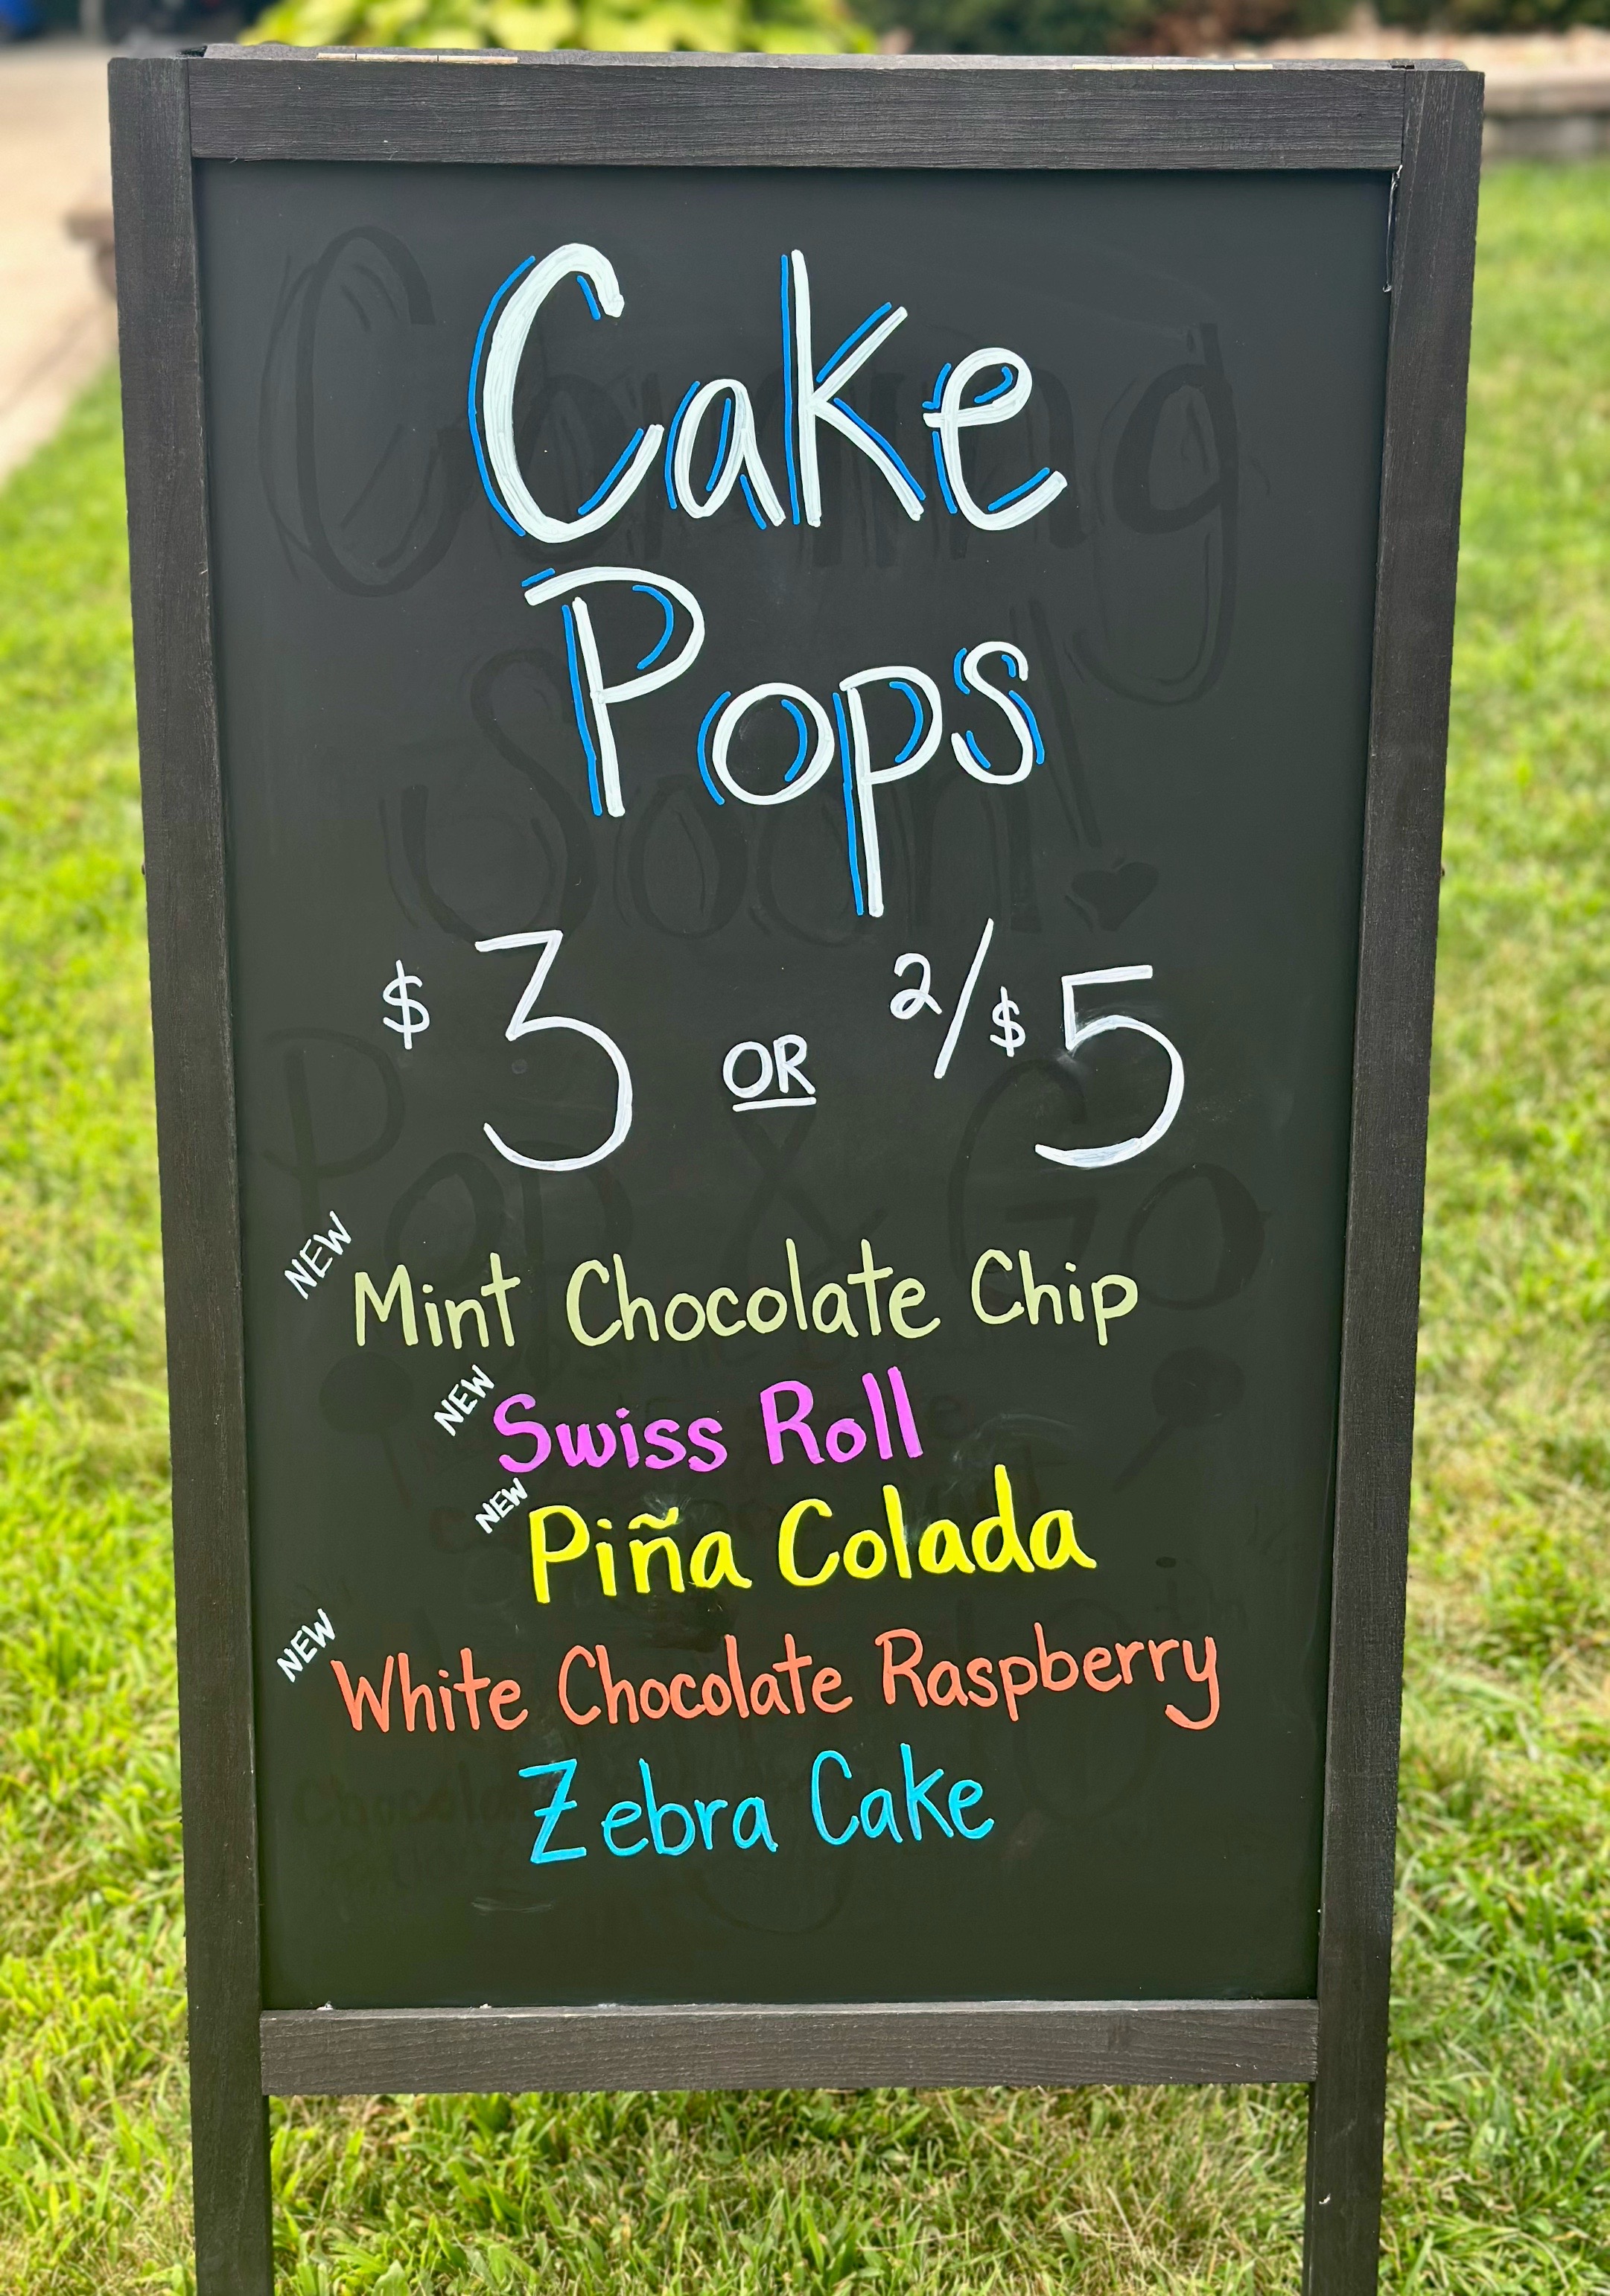 Cake
Pops
$3 OR 2/$5
NEW Mint Chocolate Chip
NEW Swiss Roll
NEW Piña Colada
NEW White Chocolate Raspberry
Zebra Cake
Coming
Soon!
Pop & Go